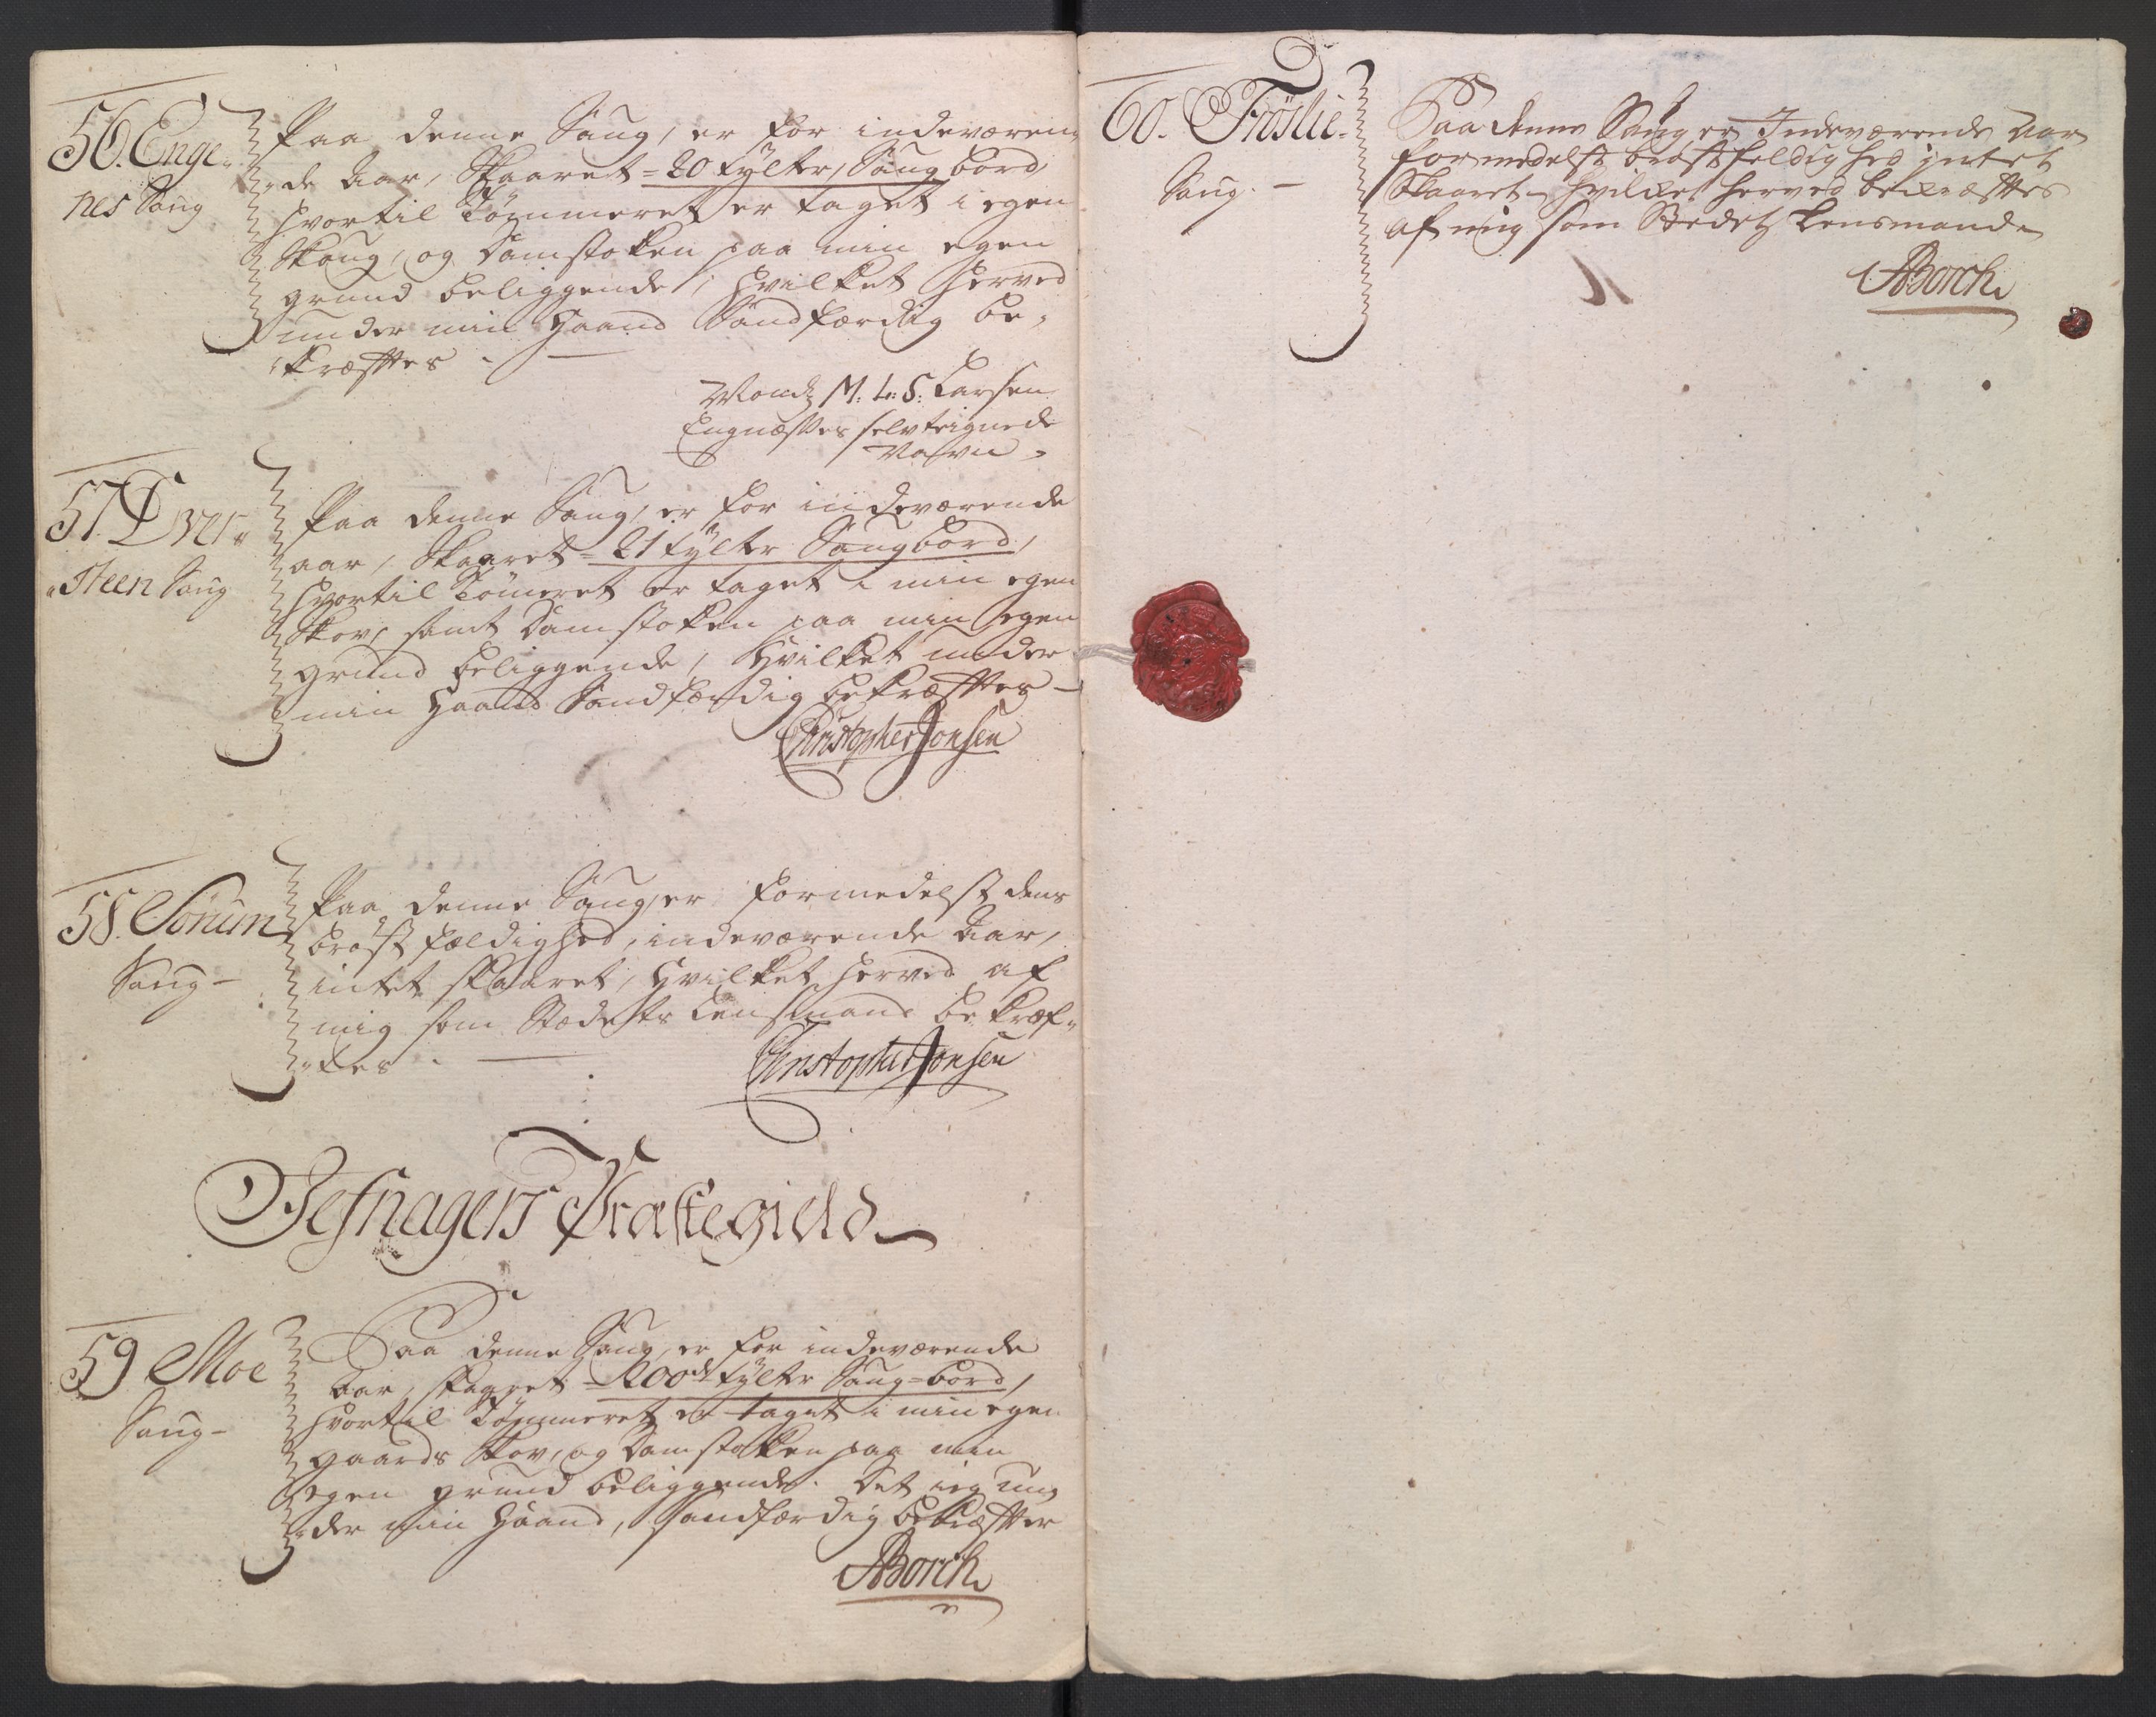 56. Enge-
nes Saug
Paa denne Saug, er for indeværen-
de Aar, Skaaret = 20 tylter, Saugbord,
hvortil Tømmeret er taget i egen
Skoug, og Damstoken paa min egen
grund beliggende, hvilket herved
under min Haand Sandfærdig be-
kræftes -
M: L: S: Larsen
Engnæsses selvteignede
Nafvn.
57. Øver-
steen Saug
Paa denne Saug, er for indeværende
aar, Skaaret = 21 tylter Saugbord,
hvortil Tømeret er taget i min egen
Skov, samt Damstoken paa min egen
grund beliggende, Hvilket under
min Haand Sandfærdig bekræftes -
Christopher Jonsen
58. Sørum
Saug -
Paa denne Saug, er formedelst dens
brøstfældighed, indeværende Aar,
intet skaaret, Hvilket herved af
mig som Stædets Lensmand bekræf-
tes -
Christopher Jonsen
Jefnagers Præstegield
59 Moe
Saug -
Paa denne Saug, er for indeværende
Aar, skaaret = 200de tylter Saug-bord,
hvortil Tømmeret er taget i min egen
gaards Skov, og Damstokken paa min
egen grund beliggende. Det ieg un-
der min Haand, sandfærdig bekræfter
ABorch
60. Frøslie
Saug. -
Paa denne Saug er Indeværende Aar
formedelst brøstfeldighed intet
Skaaret - hvilket herved bekræftes
af mig som Stedetz Lensmand
ABorch